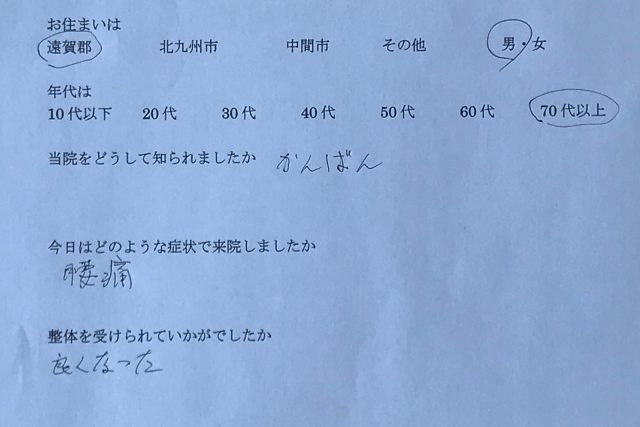 お住まいは
遠賀郡 北九州市 中間市 その他 男・女
年代は
10代以下 20代 30代 40代 50代 60代 70代以上
当院をどうして知られましたか かんばん
今日はどのような症状で来院しましたか
腰痛
整体を受けられていかがでしたか
良くなった